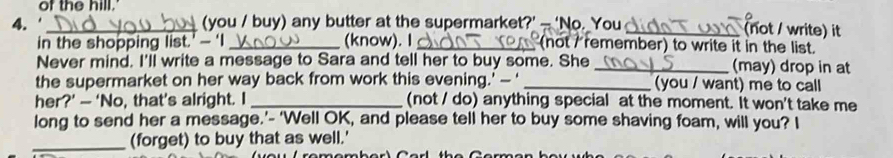 of the hill.'
4. ' Did you buy (you / buy) any butter at the supermarket?' – 'No. You didn't (not / write) it
in the shopping list.' – 'I Know (know). I didn't rem (not / remember) to write it in the list.
Never mind. I'll write a message to Sara and tell her to buy some. She may s (may) drop in at
the supermarket on her way back from work this evening.' – ' (you / want) me to call
her?' – 'No, that's alright. I (not / do) anything special at the moment. It won't take me
long to send her a message.'- 'Well OK, and please tell her to buy some shaving foam, will you? I
(forget) to buy that as well.'